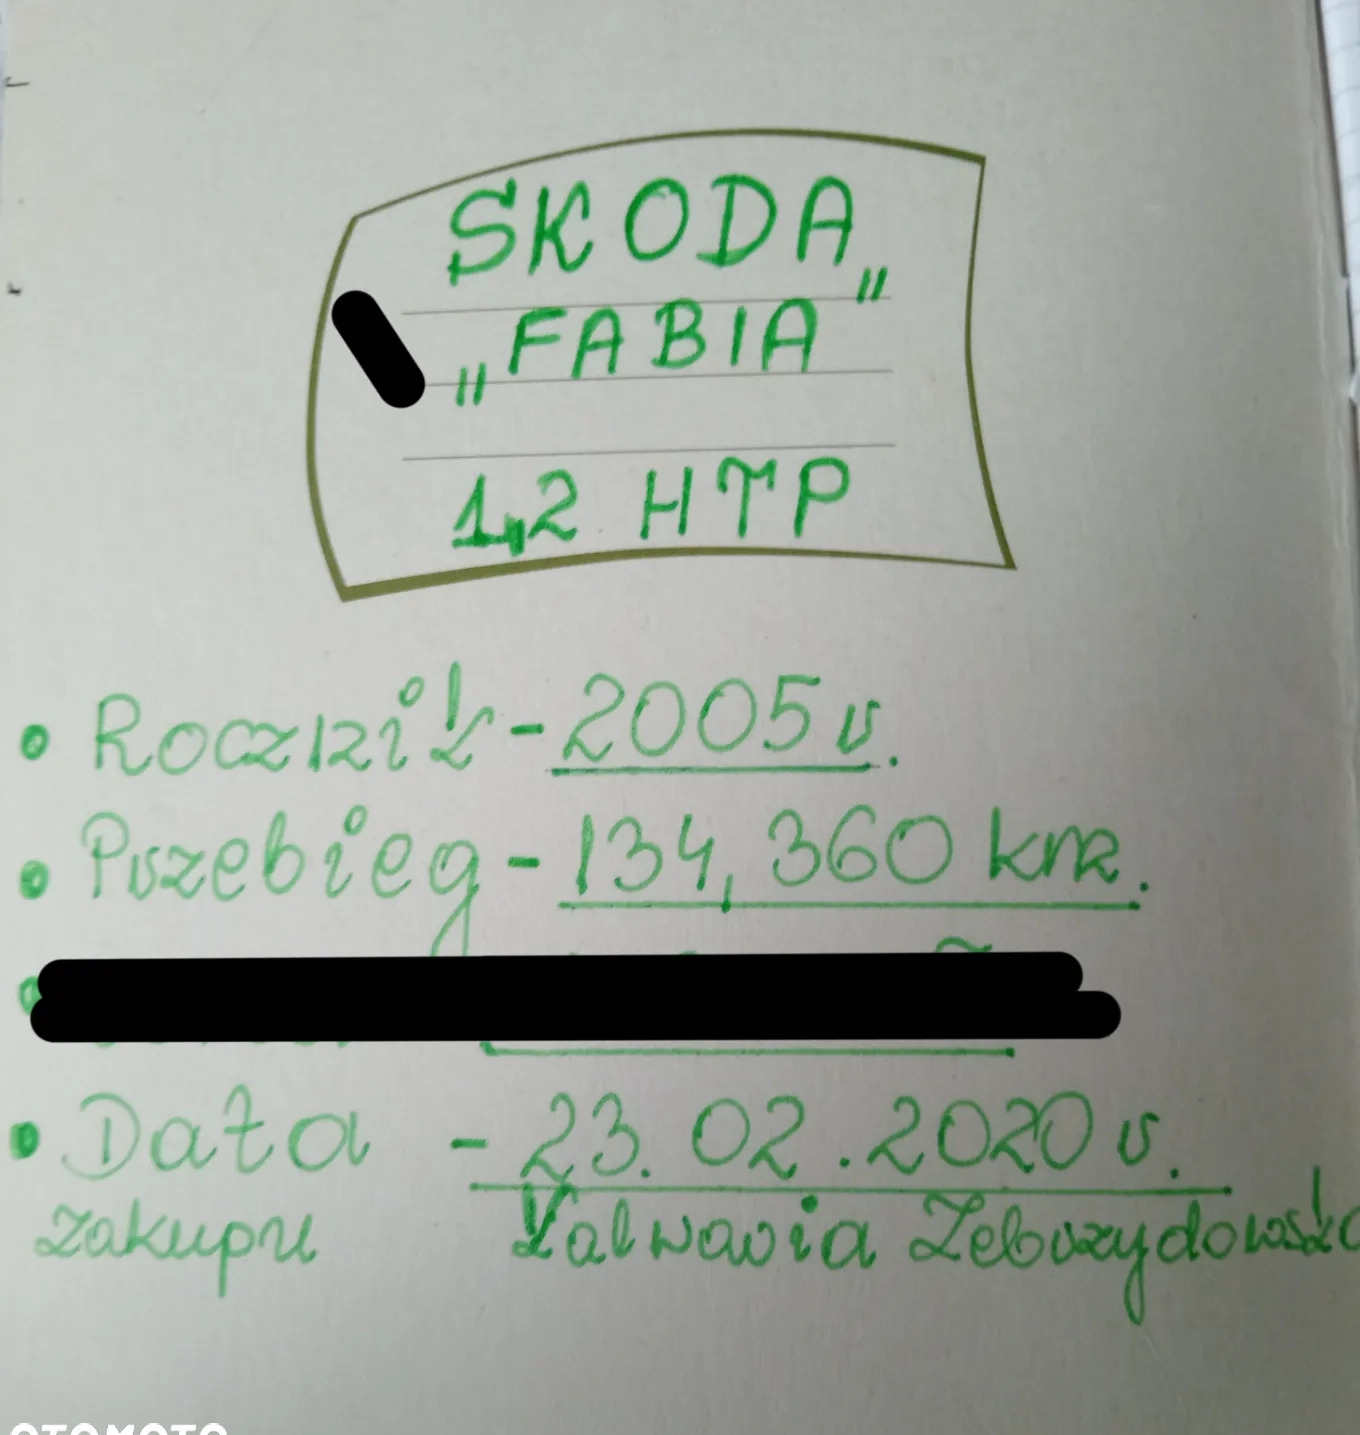 SKODA
„FABIA”
1,2 HTP
• Rocznik - 2005 r.
• Przebieg - 134,360 km.
• Data - 23.02.2020 r.
zakupu Kalwaria Zebrzydowska
OTOMOTO